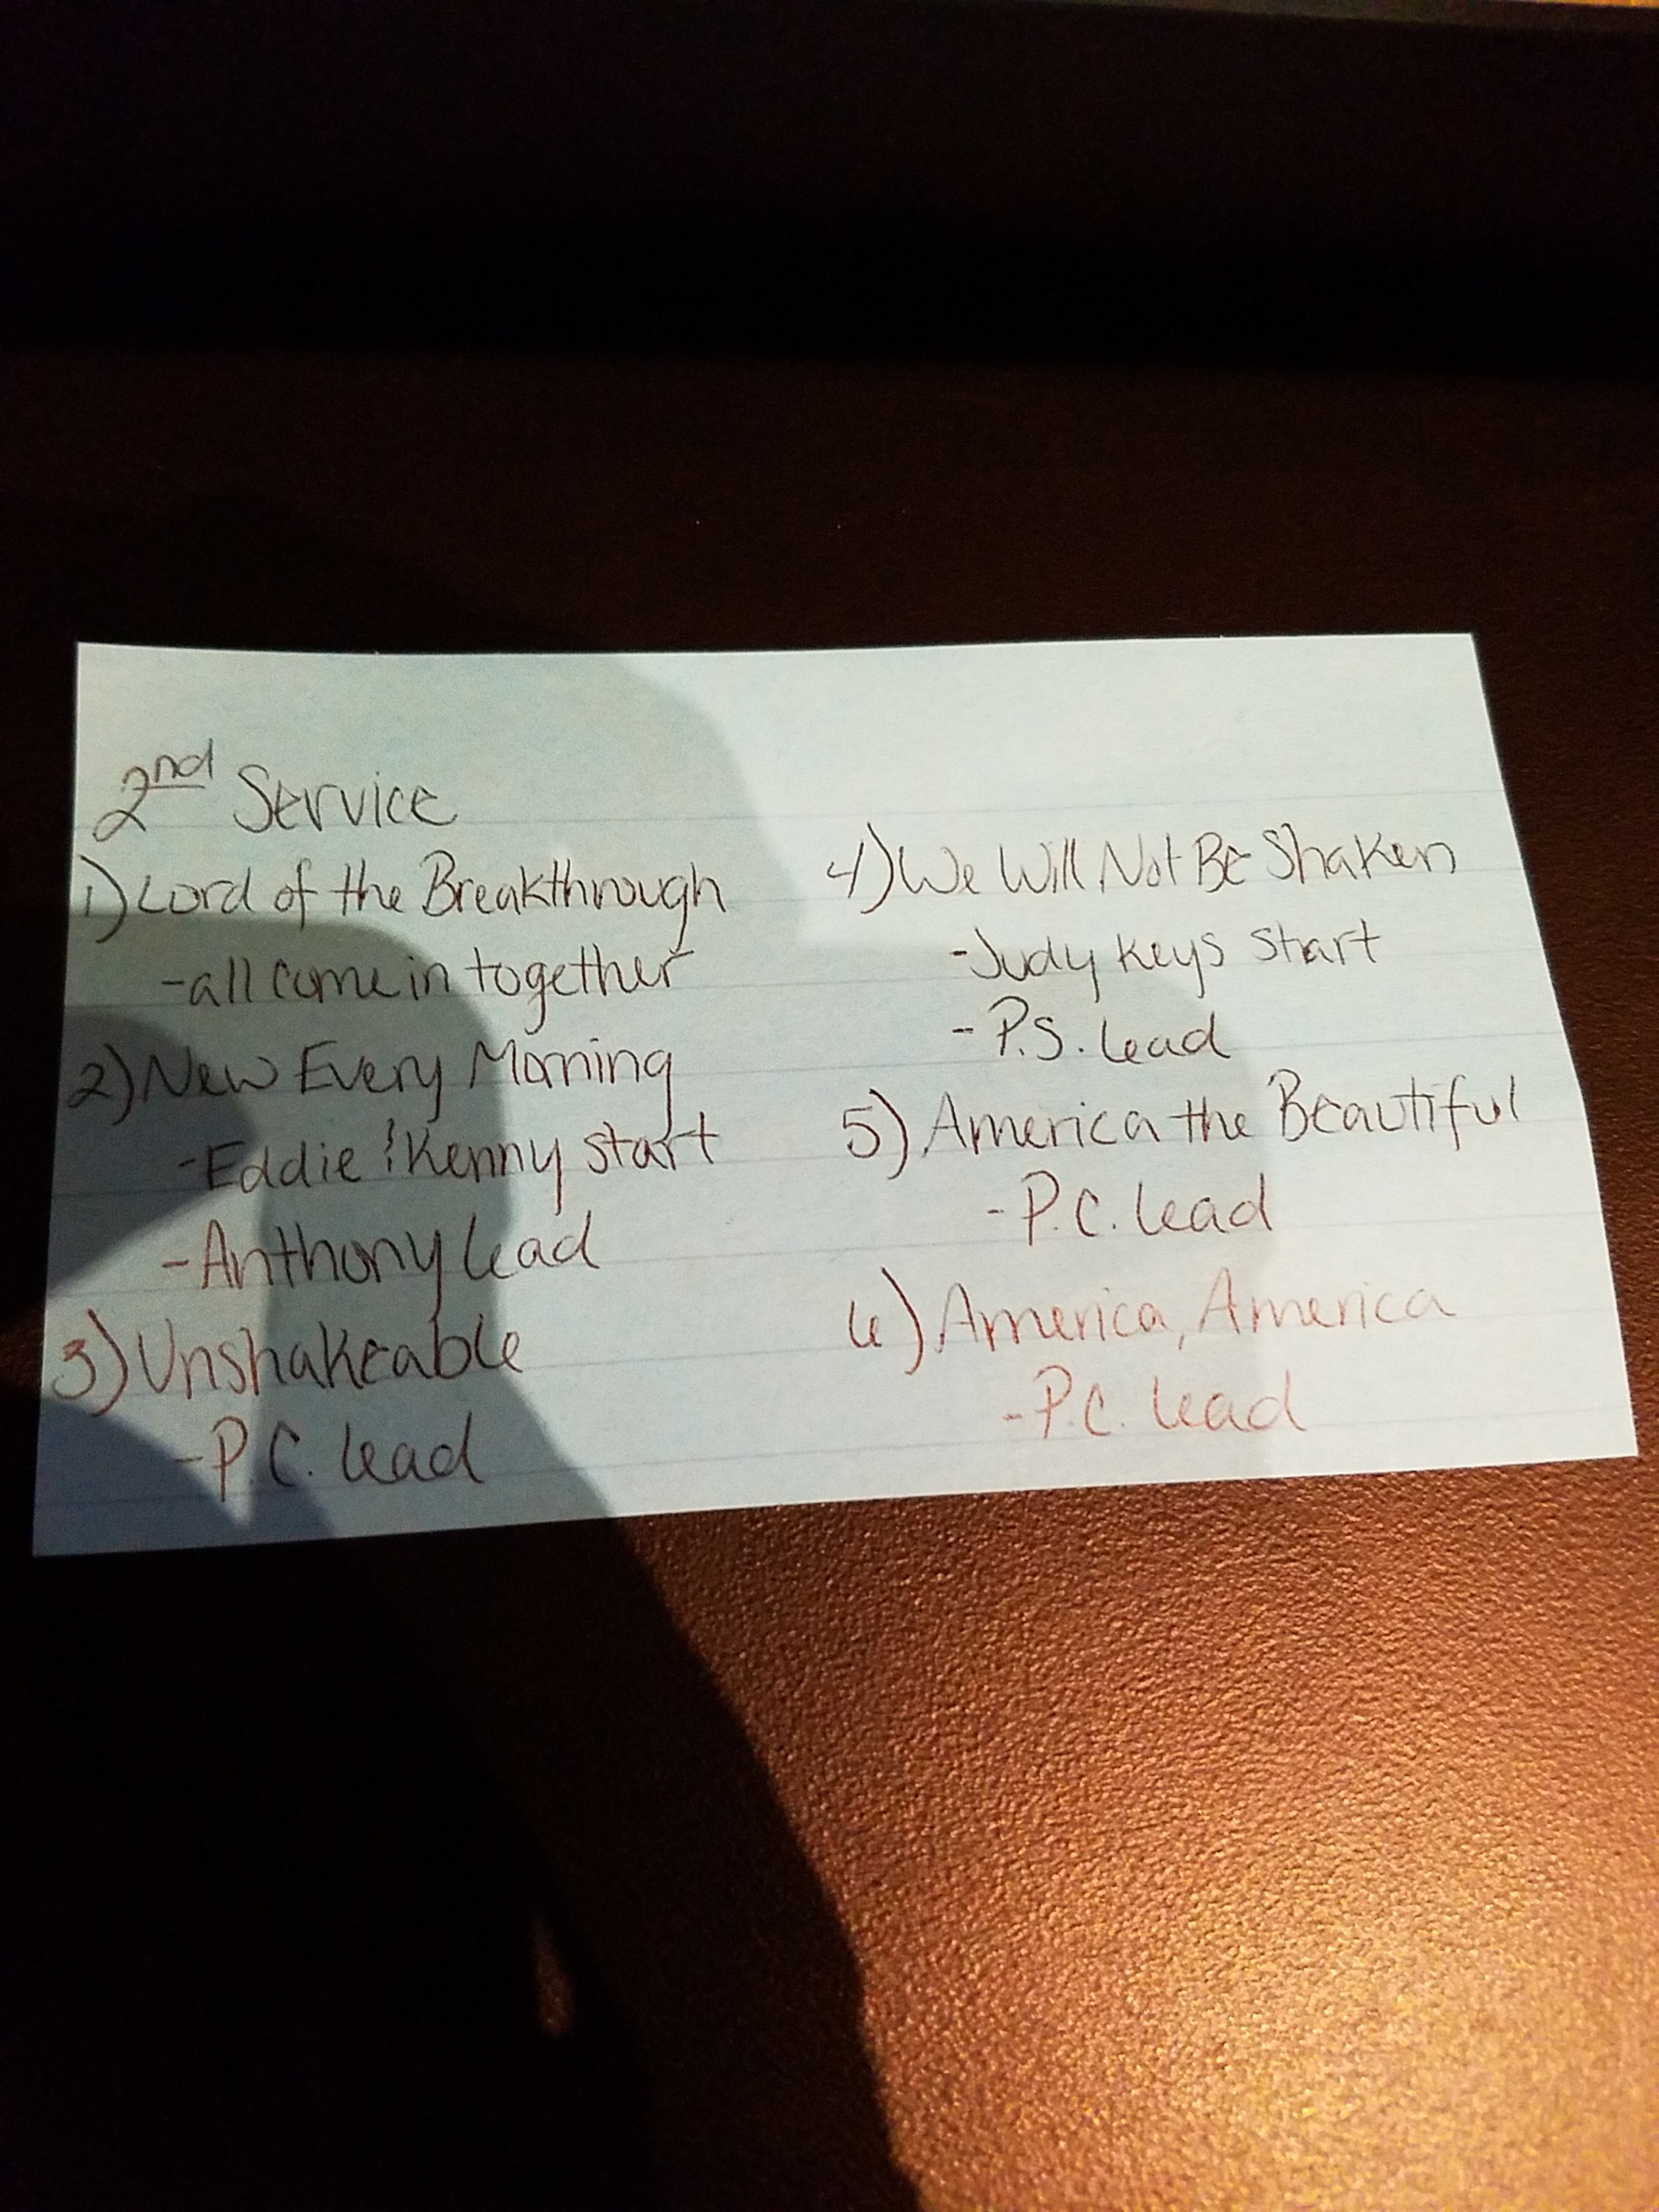 2nd Service
1) Lord of the Breakthrough
-all come in together
2) New Every Morning
-Eddie & Kenny start
-Anthony lead
3) Unshakeable
-P.C. lead
4) We Will Not Be Shaken
-Judy keys start
-P.S. lead
5) America the Beautiful
-P.C. lead
6) America, America
-P.C. lead